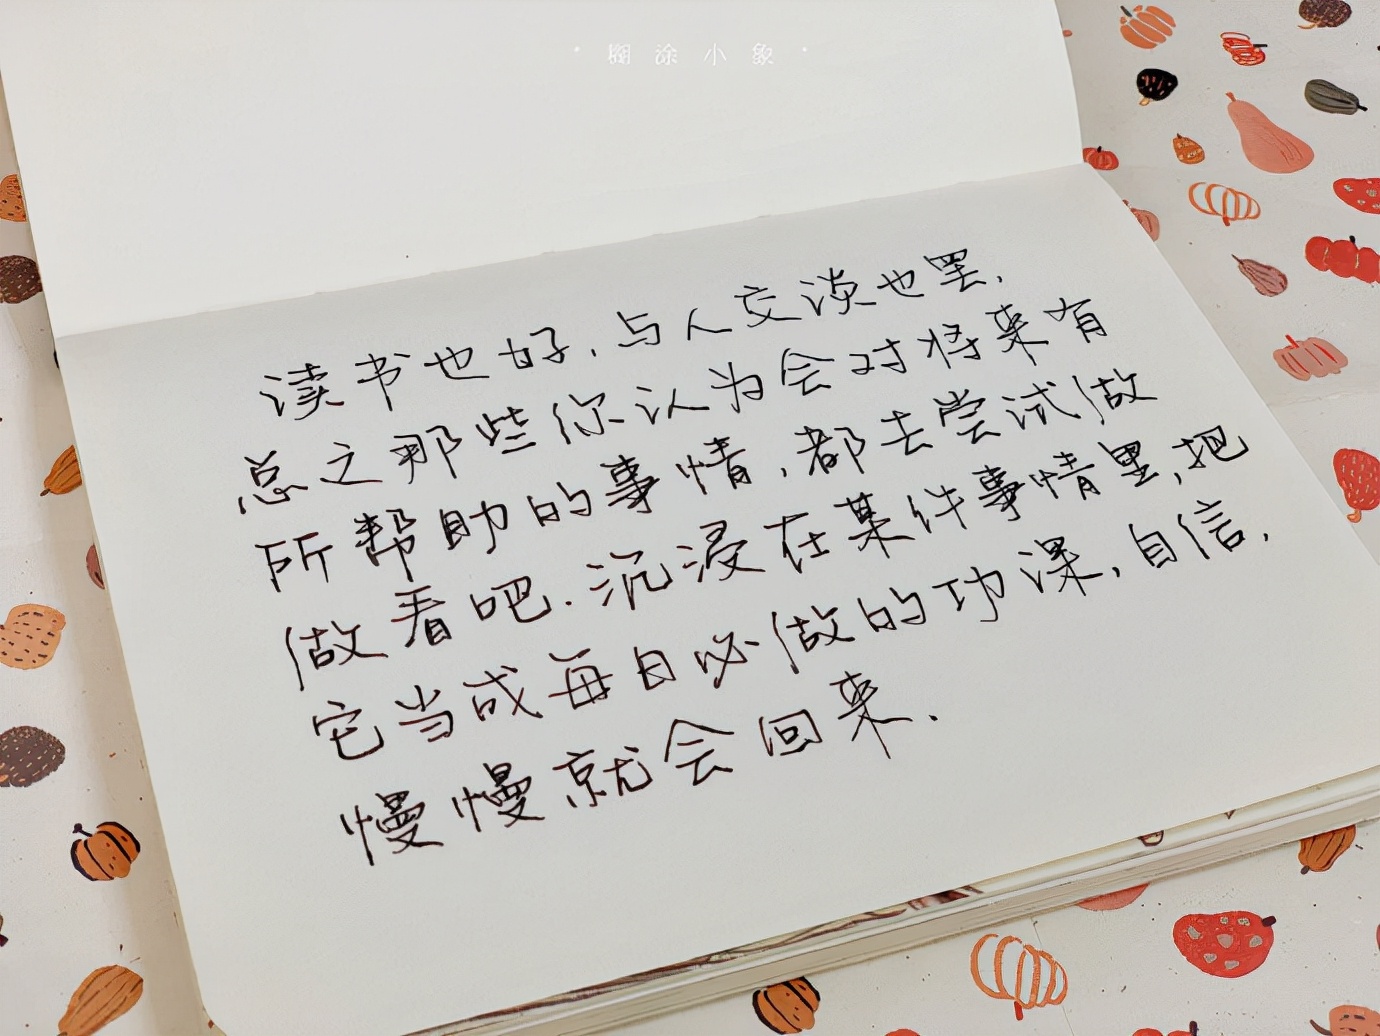 糊涂小象
读书也好,与人交谈也罢,
总之那些你认为会对将来有
所帮助的事情,都去尝试做
做看吧.沉浸在某件事情里,把
它当成每日必做的功课,自信,
慢慢就会回来.